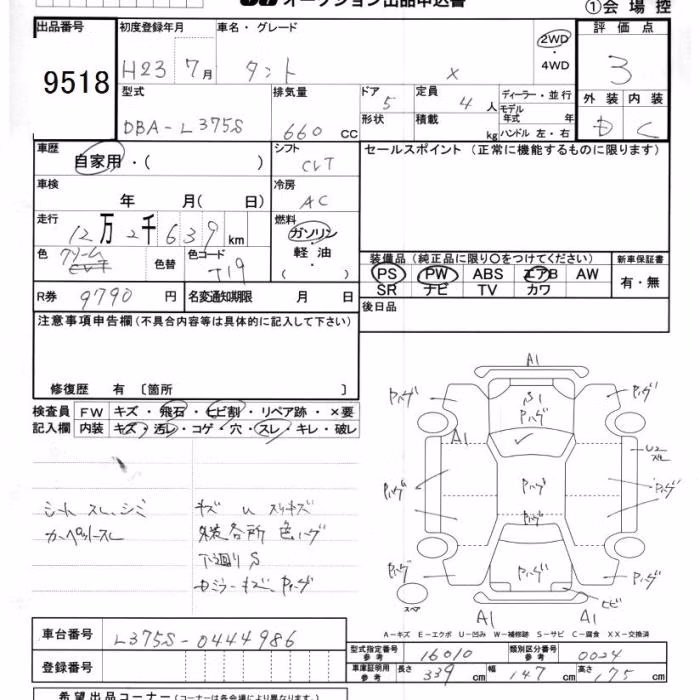 オークション出品申込書
①会場控
出品番号 初度登録年月 車名・グレード 評価点
9518 H23 7月 タント × 2WD ・ 4WD 3
型式 排気量 ドア 5 定員 4人 ディーラー・並行 外装 内装
DBA-L375S 660 CC 形状 積載 kg モデル年式 年 D C
ハンドル 左・右
車歴 シフト セールスポイント (正常に機能するものに限ります)
自家用・( ) CVT
車検 冷房
年 月(日) AC
走行 燃料
12万2千639km ガソリン・軽油・( )
色 クリーム 色替 色コード T19
装備品(純正品に限り○をつけてください) 新車保証書
PS PW ABS エアB AW 有・無
SR ナビ TV カワ
R券 9790円 名変通知期限 月 日 後日品
注意事項申告欄(不具合内容等は具体的に記入して下さい)
修復歴 有 〔箇所 〕
検査員 FW キズ・飛石・ヒビ割・リペア跡・×要
記入欄 内装 キズ・汚レ・コゲ・穴・スレ・キレ・破レ
シート スレ、シミ
カーペットスレ
キズ U スリキズ
外装各所 色ハゲ
下廻り S
カミラーキズ、Pハゲ
A1
Pハゲ S1 Pハゲ Pハゲ
A1 U2
Pハゲ Pハゲ Pハゲ
Pハゲ
Pハゲ Pハゲ Pハゲ
スペア ヒビ
A1 A1
A-キズ E-エクボ U-凹み W-補修跡 S-サビ C-腐食 XX-交換済
車台番号 L375S-0444986
型式指定番号 参考 16010 類別区分番号 参考 0024
登録番号
車庫証明用 参考 長さ 339 幅 147 高さ 175 cm
希望出品コーナー(コーナーは各会場により異なります)